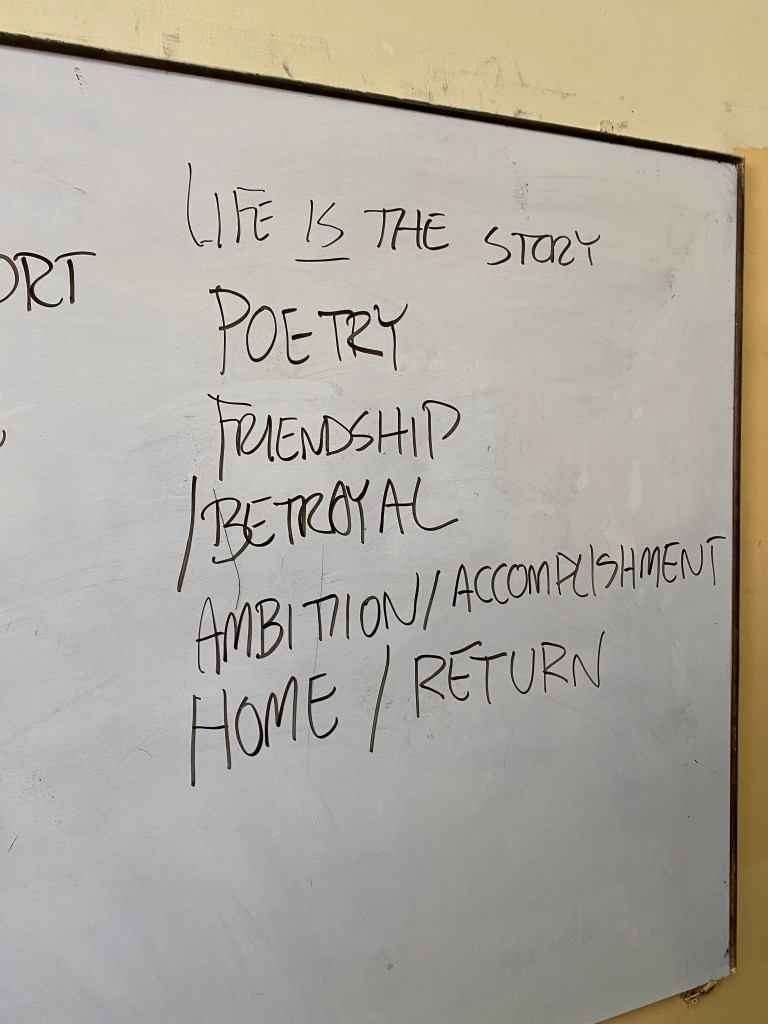 LIFE IS THE STORY
POETRY
FRIENDSHIP
/BETRAYAL
AMBITION/ACCOMPLISHMENT
HOME / RETURN